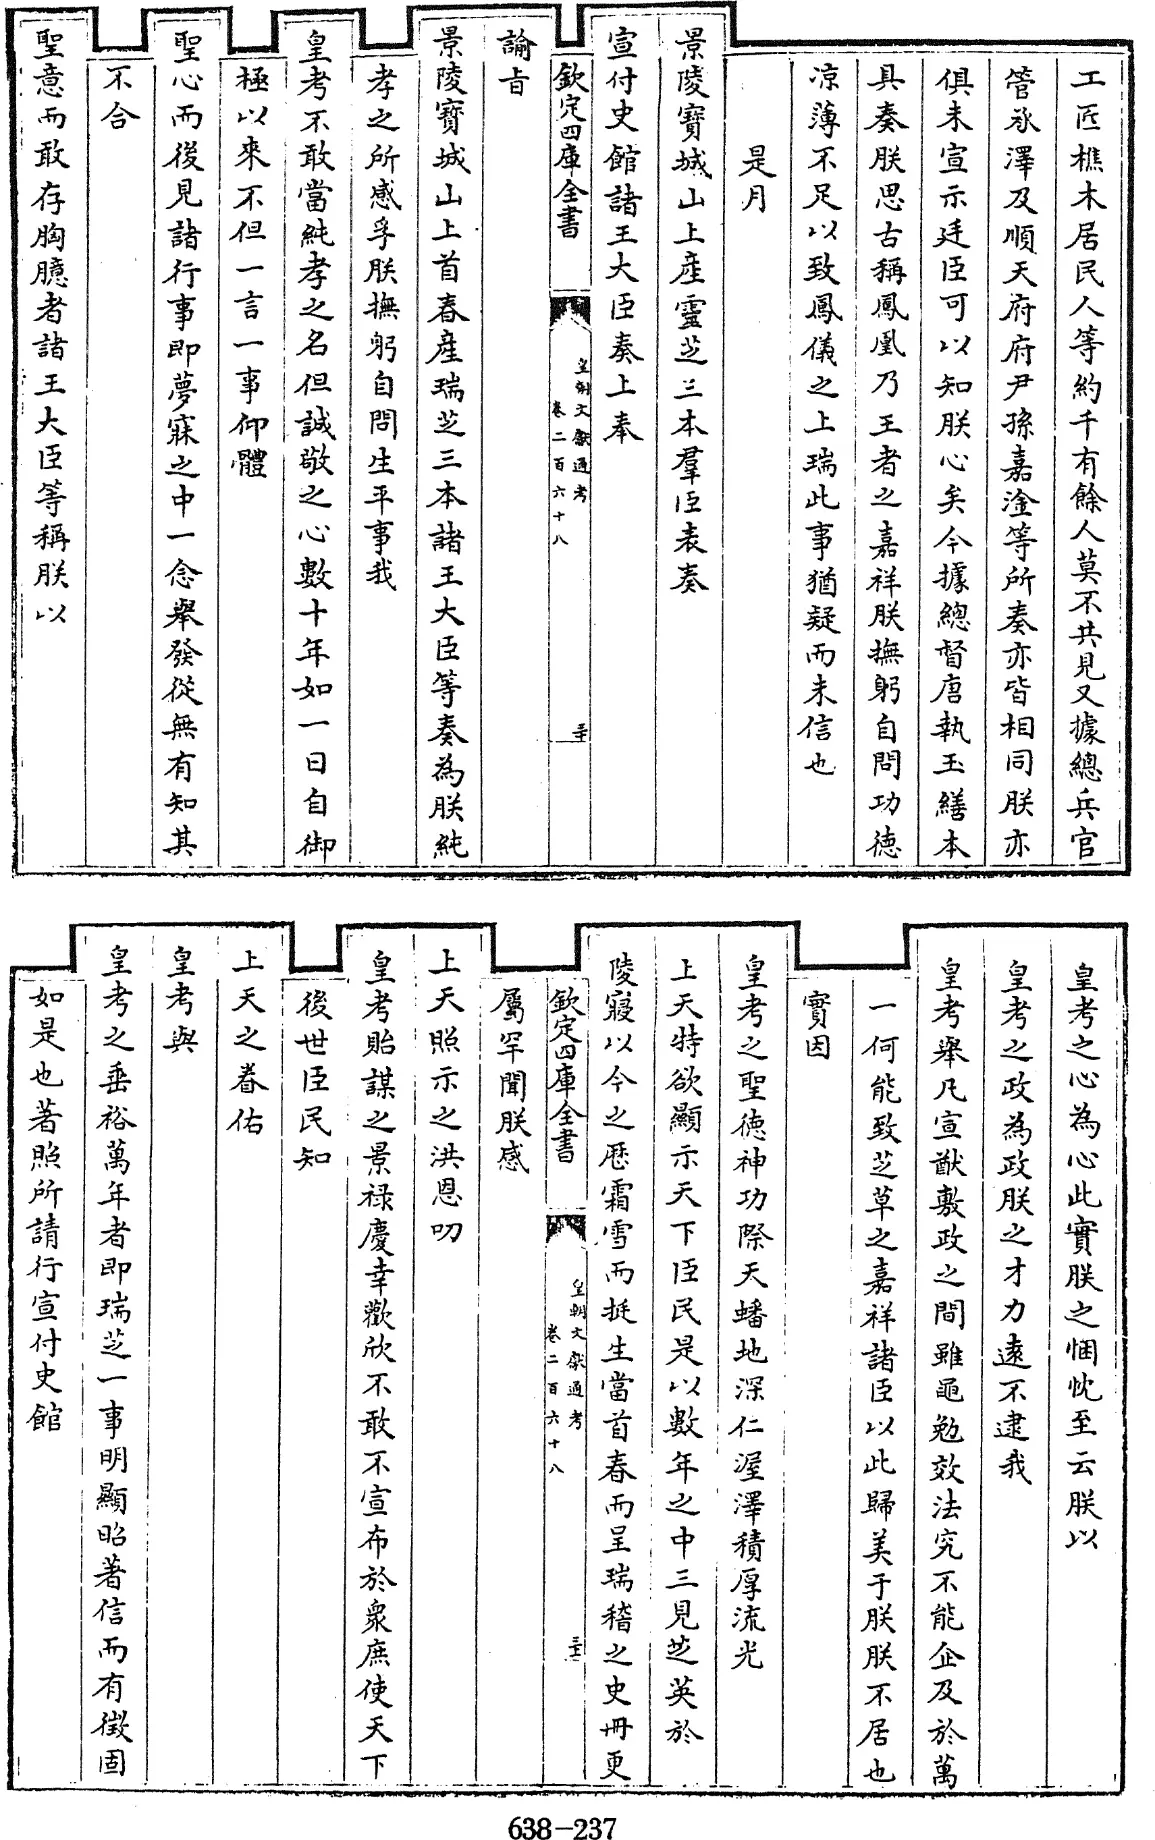 工匠樵木居民人等約千有餘人莫不共見又據總兵官
管承澤及順天府府尹孫嘉淦等所奏亦皆相同朕亦
俱未宣示廷臣可以知朕心矣今據總督唐執玉繕本
具奏朕思古稱鳳凰乃王者之嘉祥朕撫躬自問功德
凉薄不足以致鳳儀之上瑞此事猶疑而未信也
是月
景陵寶城山上產靈芝三本羣臣表奏
宣付史館諸王大臣奏上奉
欽定四庫全書
皇朝文獻通考
卷二百六十八
三十
諭旨
景陵寶城山上首春產瑞芝三本諸王大臣等奏為朕純
孝之所感孚朕撫躬自問生平事我
皇考不敢當純孝之名但誠敬之心數十年如一日自御
極以來不但一言一事仰體
聖心而後見諸行事即夢寐之中一念舉發從無有知其
不合
聖意而敢存胸臆者諸王大臣等稱朕以
皇考之心為心此實朕之悃忱至云朕以
皇考之政為政朕之才力遠不逮我
皇考舉凡宣猷敷政之間雖黽勉效法究不能企及於萬
一何能致芝草之嘉祥諸臣以此歸美于朕朕不居也
實因
皇考之聖德神功際天蟠地深仁渥澤積厚流光
上天特欲顯示天下臣民是以數年之中三見芝英於
陵寢以今之歷霜雪而挺生當首春而呈瑞稽之史冊更
欽定四庫全書
皇朝文獻通考
卷二百六十八
三十一
屬罕聞朕感
上天照示之洪恩叨
皇考貽謀之景祿慶幸歡欣不敢不宣布於衆庶使天下
後世臣民知
上天之眷佑
皇考與
皇考之垂裕萬年者即瑞芝一事明顯昭著信而有徵固
如是也著照所請行宣付史館
638-237